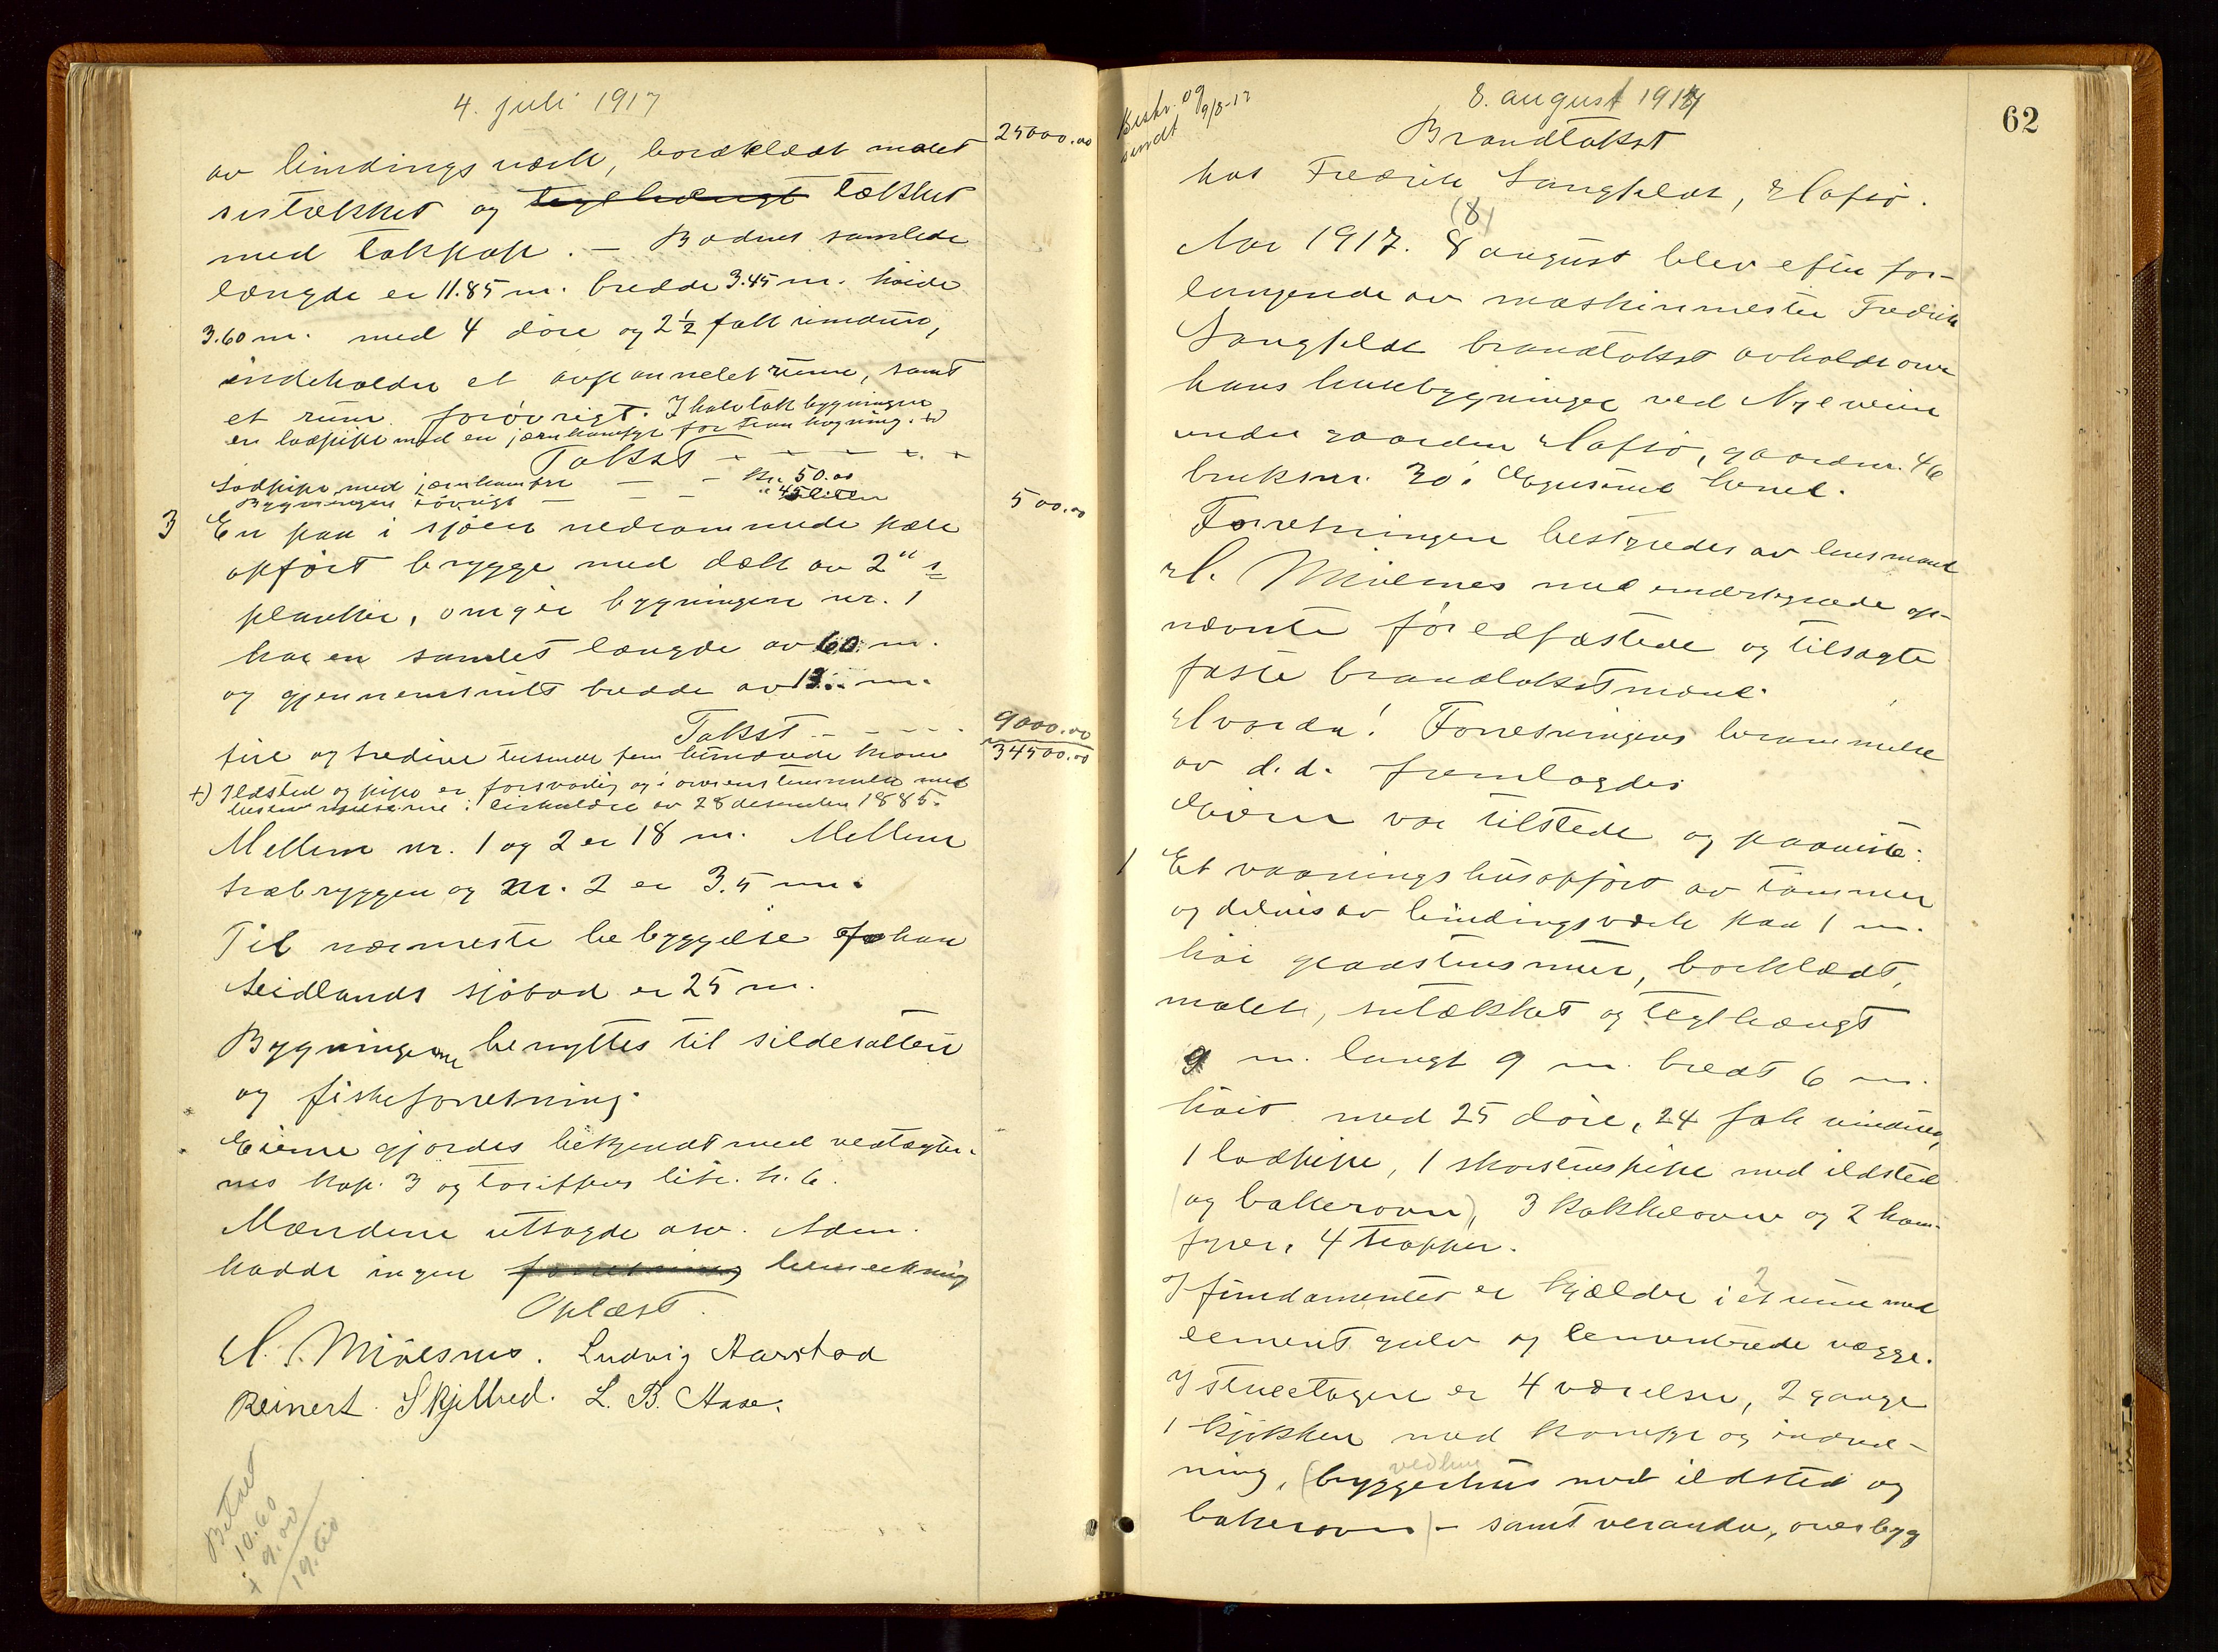 4. juli 1917
25000.00
av bindingsværk, bordklædt malet
sutækket og teglhængt tækket
med takpap. – Bodens samlede
længde er 11.85 m. bredde 3.45 m. høide
3.60 m. med 4 døre og 2½ fall vinduer,
indeholder et avpannelet rum, samt
et rum forøvrigt. I halvtak bygningen
er lodpipe med en jernkomfyr for tran kogning. +)
Takst
Lodpipe med jernkomfyr – – Kr. 50.00
Bygningen iøvrigt – – – " 450.00
500.00
3 En paa i sjøen nedrammede pæle
opført brygge med dæk av 2" s
planker, omgir bygningen nr. 1
har en samlet længde av 60 m.
og gjennemsnits bredde av 13 m.
Takst
9000.00
fire og tredive tusinde fem hundrede kroner
34500.00
+) Ildsted og pipe er forsvarlig og i overensstemmelse med
bestemmelserne i cirkulære av 28 desember 1885.
Mellem nr. 1 og 2 er 18 m. Mellem
træbryggen og nr. 2 er 3.5 m.
Til nærmeste bebyggelse Johan
Seidlands sjøbod er 25 m.
Bygningerne benyttes til sildesalteri
og fiskeforretning.
Eierne gjordes bekjendt med vedtægter-
nes kap. 3 og tariffens litr. h. 6.
Mændene utsagde osv. Adm.
hadde ingen forretning bemerkning
Oplæst.
H. Midesnes. Ludvig Aarstad
Reinert Skjelbred. L. B. Aase.
Betalt
10.60
+ 9.00
19.60
62
Beskr. og
sendt 9/8-17
8. august 1917
Brandtakst
hos Fredrik Langfeldt, Hafsø.
(8)
Aar 1917. 8 august blev efter for-
langende av maskinmester Fredrik
Langfeldt brandtakst avholdt over
hans husebygninger ved Nyeveien
under gaarden Hafsø, gaardsnr. 46
bruksnr. 30 i Egersund herred.
Forretningen bestyredes av lensmand
H. Midesnes med undertegnede op-
nævnte før edfæstede og tilsagte
faste brandtakstmænd.
Hvorda! Forretningens berammelse
av d.d. fremlagdes
Eieren var tilstede og paaviste:
1 Et vaaningshus opført av tømmer
og delvis av bindingsværk paa 1 m.
høi graastensmur, bordklædt,
malet, sutækket og teglhængt
9 m. langt 9 m. bredt 6 m.
høit med 25 døre, 24 fak vinduer,
1 lodpipe, 1 skorstenspipe med ildsted
(og bakerovn), 3 kakkelovne og 2 kom-
fyrer, 4 trapper.
I fundamentet er kjælder i et 2 rum med
cement gulv og cementerede vægge.
I 1ste etagen er 4 værelser, 2 gange
1 kjøkken med komfyr og indred-
ning, (bryggerhus med ildsted og
vedhus
bakerovn) – samt veranda, overbygg